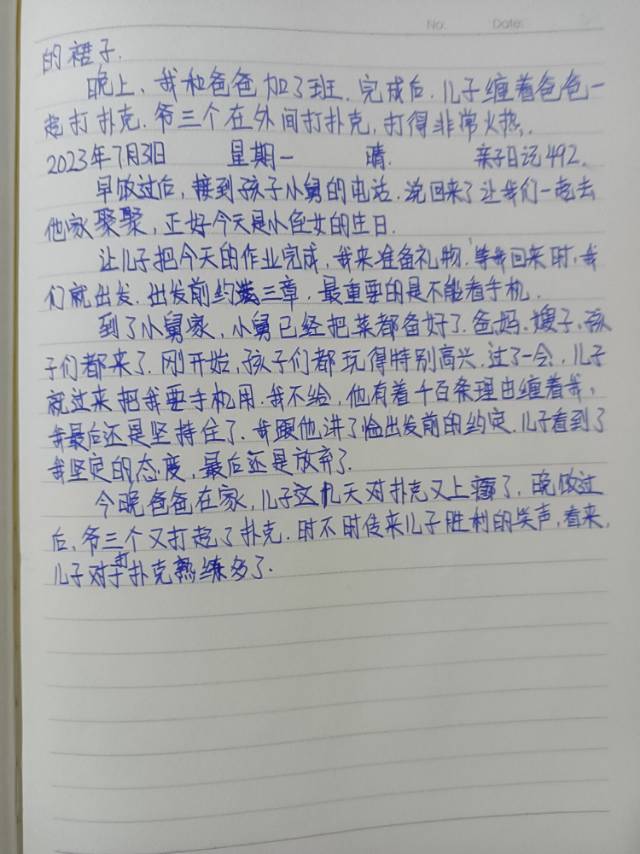 No. Date.
的裙子.
晚上，我和爸爸加了班.完成后.儿子缠着爸爸一
起打扑克.爷三个在外间打扑克,打得非常火热.
2023年7月31日 星期一 晴. 亲子日记492.
早饭过后，接到孩子小舅的电话.说回来了让我们一起去
他家聚聚，正好今天是小侄女的生日.
让儿子把今天的作业完成,我来准备礼物.等我回来时,我
们就出发.出发前约法三章，最重要的是不能看手机.
到了小舅家，小舅已经把菜都备好了.爸.妈.嫂子.孩
子们都来了.刚开始，孩子们都玩得特别高兴.过了一会,儿子
就过来把我要手机用.我不给，他有着千百条理由缠着我，
我最后还是坚持住了.我跟他讲了临出发前的约定.儿子看到了
我坚定的态度，最后还是放弃了.
今晚爸爸在家，儿子这几天对扑克又上瘾了，晚饭过
后，爷三个又打起了扑克.时不时传来儿子胜利的笑声，看来，
儿子对打扑克熟练多了.